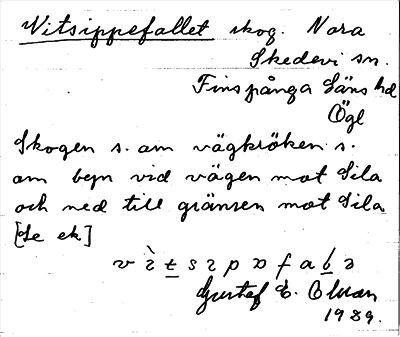 Vitsippefallet skog. Nora
Skedevi sn.
Finspånga Läns hd
Ögl
Skogen s. om vägkröken s.
om byn vid vägen mot Sila
och ned till gränsen mot Sila
[Se ek]
Gustaf E.
1989.